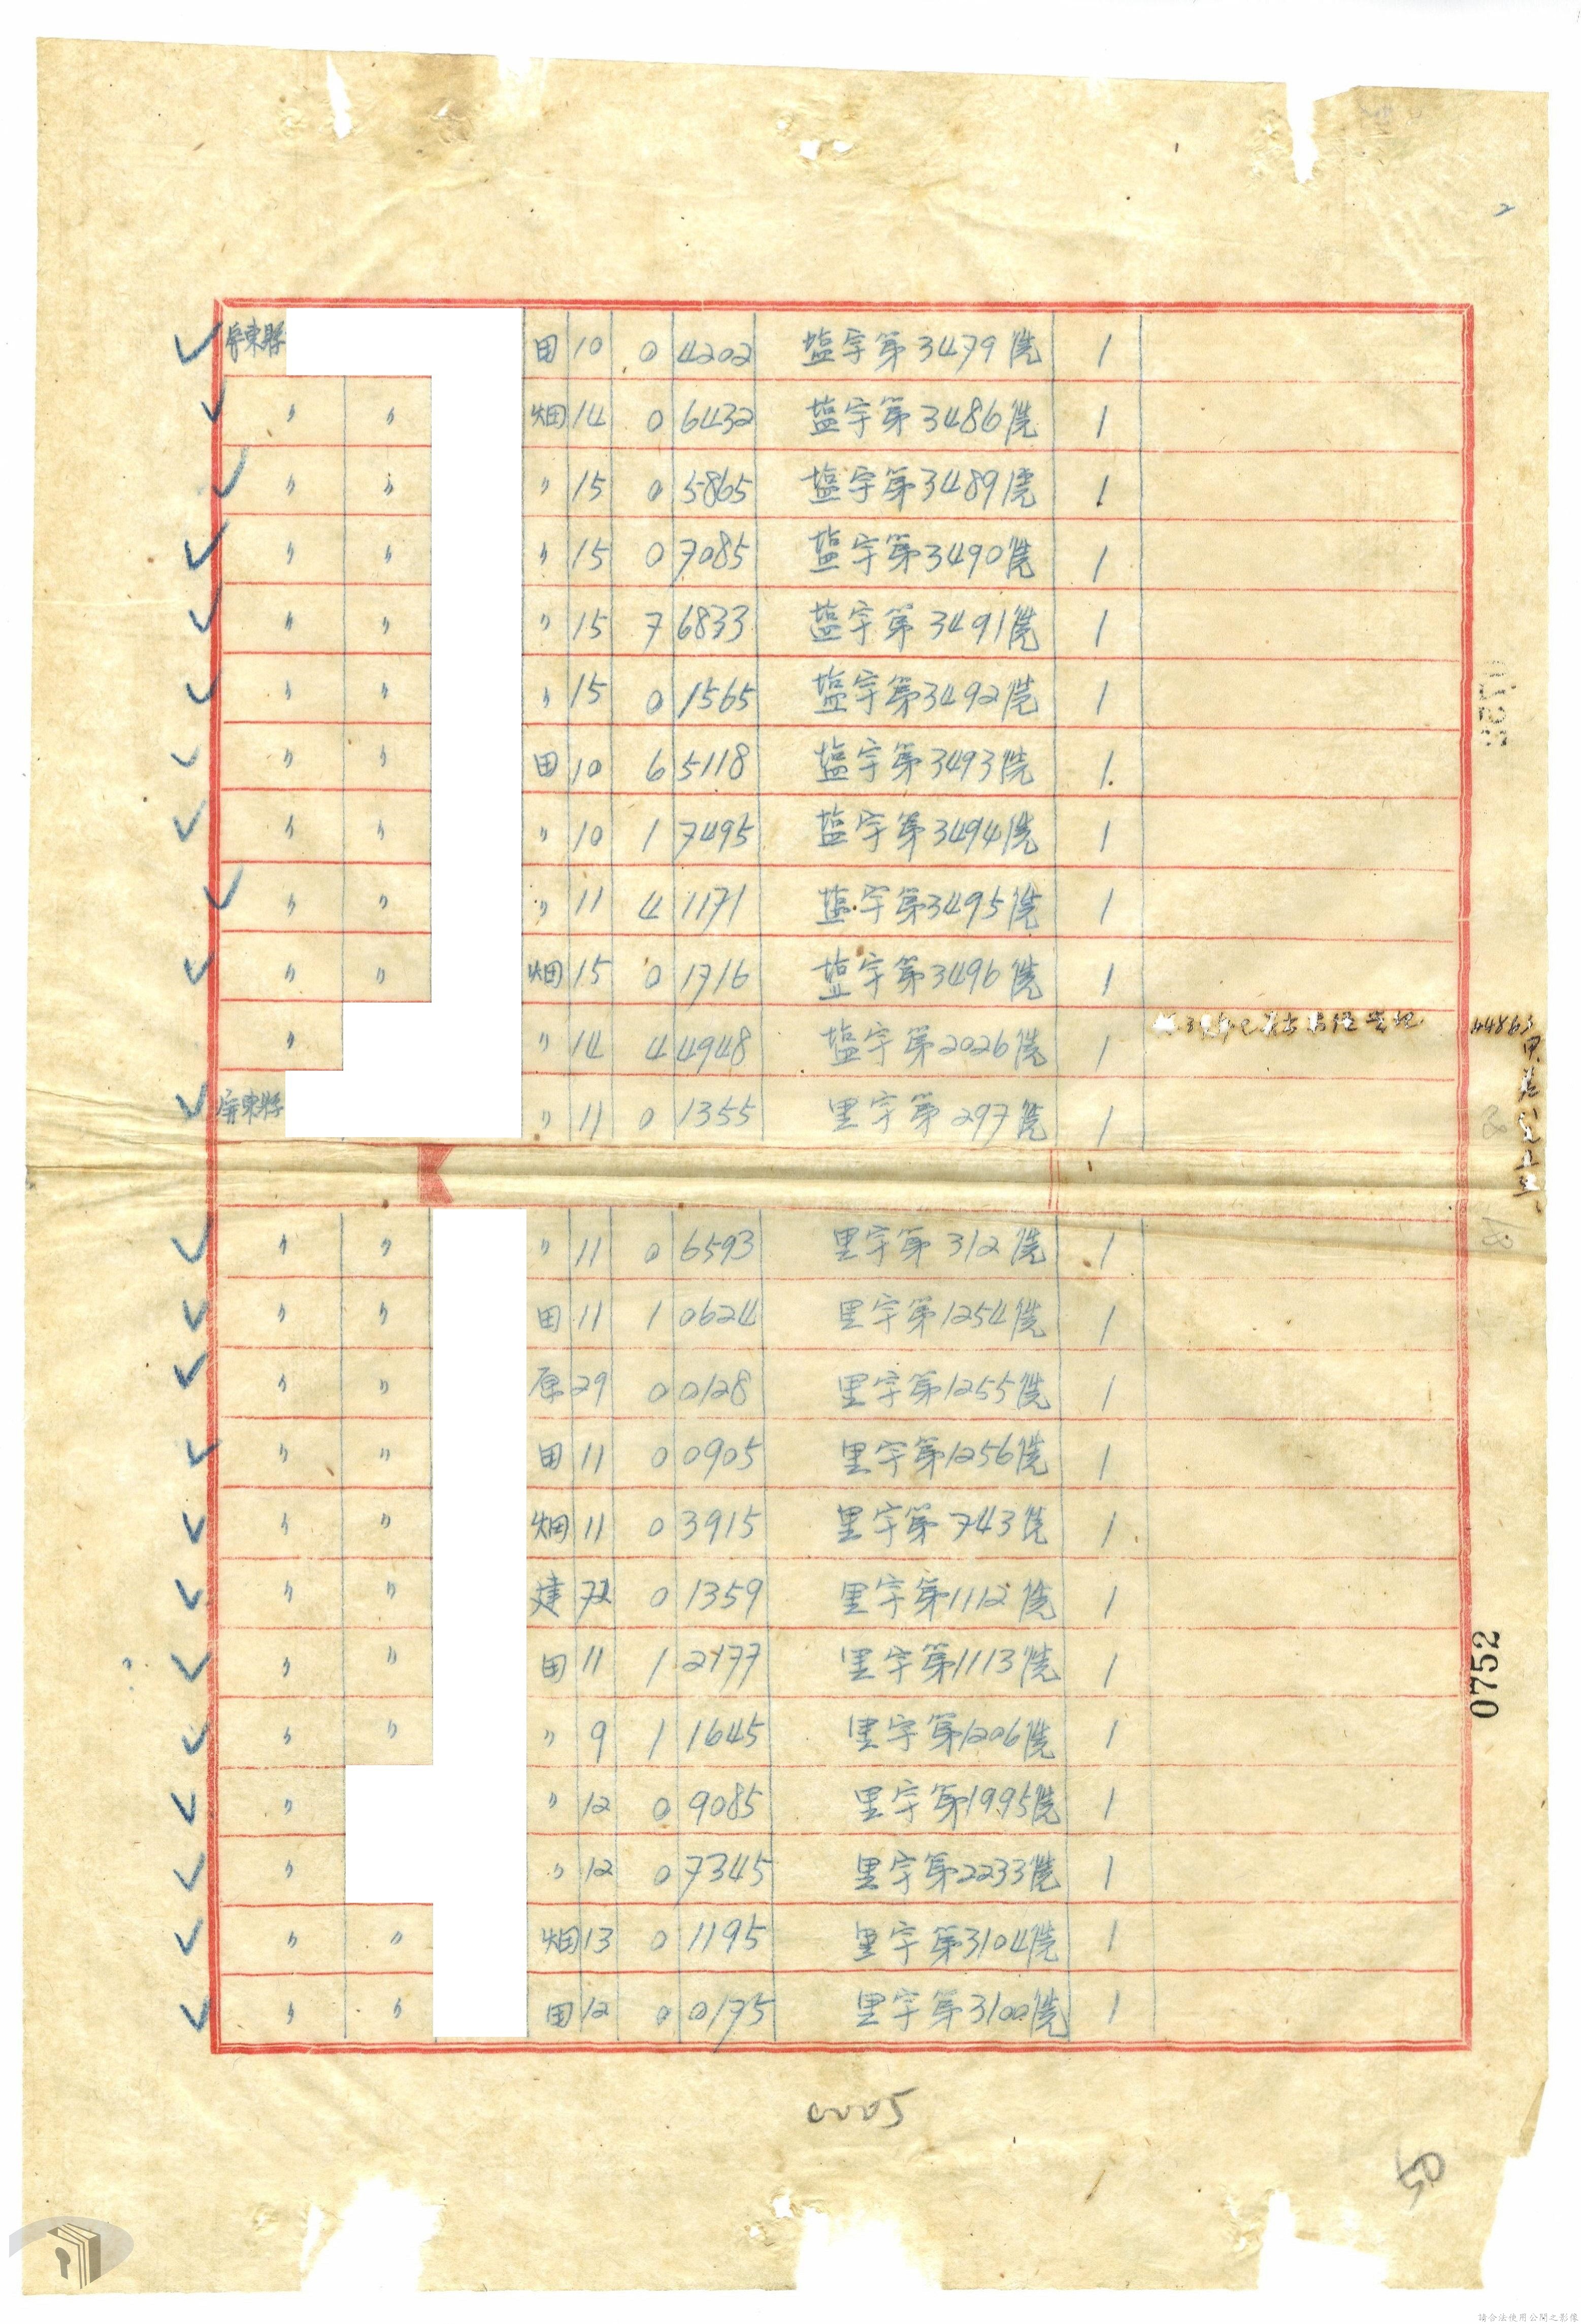 2
屏東縣 田 10 0 4202 塩字第3479號 1
〃 〃 畑 14 0 6432 塩字第3486號 1
〃 〃 〃 15 0 5865 塩字第3489號 1
〃 〃 〃 15 0 7085 塩字第3490號 1
〃 〃 〃 15 7 6833 塩字第3491號 1
〃 〃 〃 15 0 1565 塩字第3492號 1
〃 〃 田 10 6 5118 塩字第3493號 1
〃 〃 〃 10 1 7495 塩字第3494號 1
〃 〃 〃 11 4 1171 塩字第3495號 1
〃 〃 畑 15 0 1716 塩字第3496號 1
〃 〃 14 4 4948 塩字第2026號 1
44863
屏東縣 〃 11 0 1355 里字第297號 1
〃 〃 〃 11 0 6593 里字第312號 1
〃 〃 田 11 1 0624 里字第1254號 1
〃 〃 原 29 0 0128 里字第1255號 1
〃 〃 田 11 0 0905 里字第1256號 1
〃 〃 畑 11 0 3915 里字第743號 1
〃 〃 建 72 0 1359 里字第1112號 1
〃 〃 田 11 1 2177 里字第1113號 1
〃 〃 〃 9 1 1645 里字第1206號 1
〃 〃 12 0 9085 里字第1995號 1
〃 〃 12 0 7345 里字第2233號 1
〃 〃 畑 13 0 1195 里字第3104號 1
〃 〃 田 12 0 0175 里字第3100號 1
0752
0005
50
請合法使用公開之影像